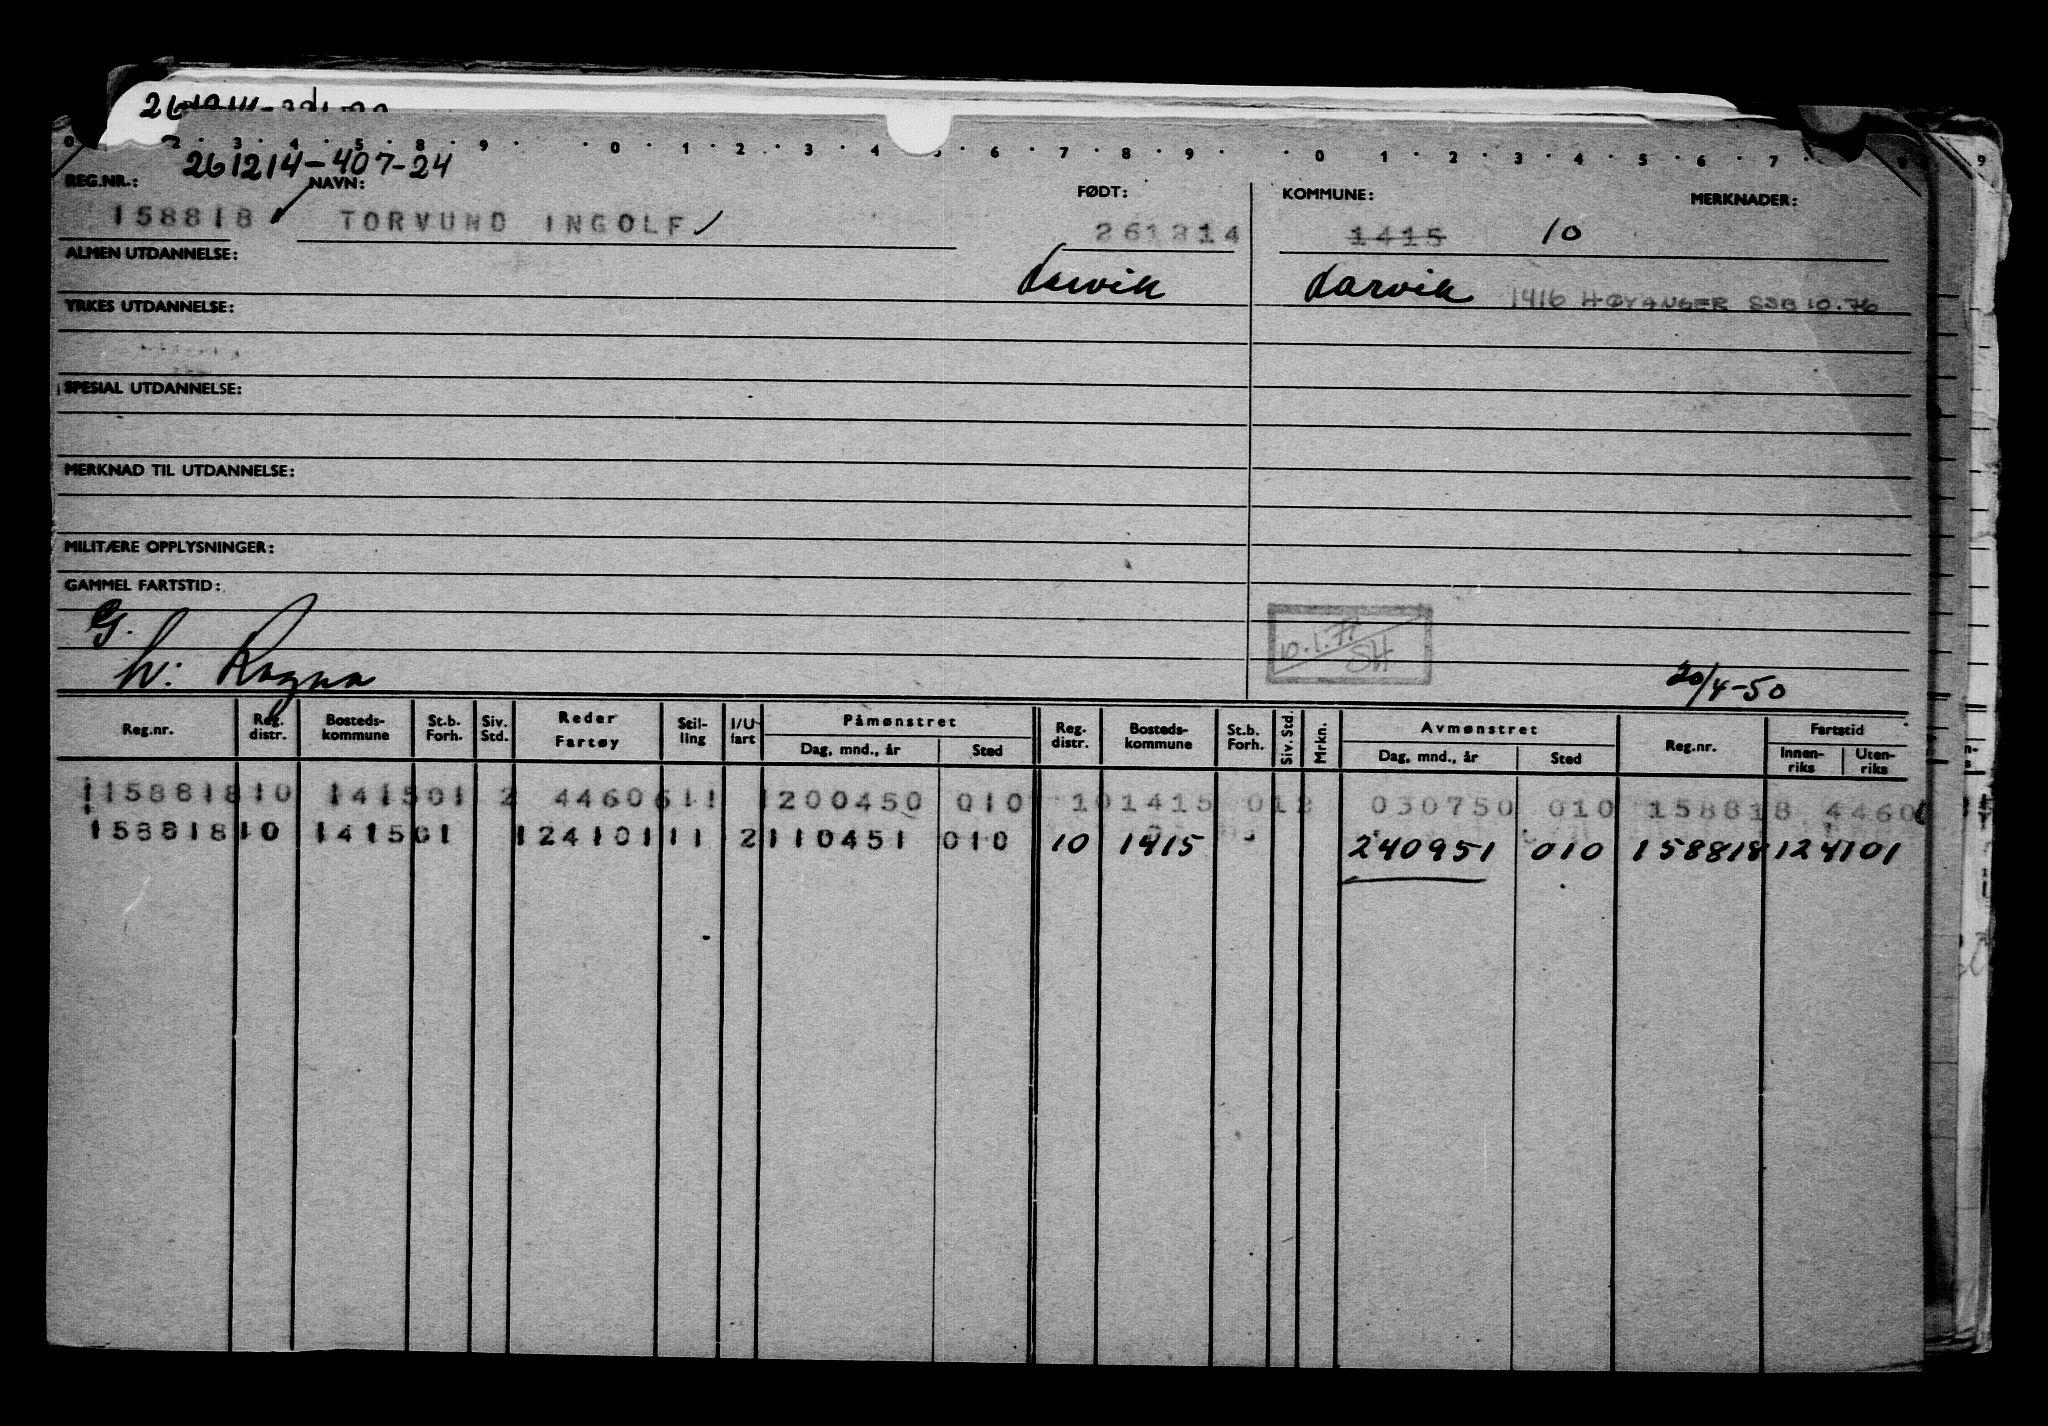 0 2 · 3 · 4 · 5 · 8 · 9 · · 0 · 1 · 2 · 3 · 4 · 5 · 6 · 7 · 8 · 9 · · 0 · 1 · 2 · 3 · 4 · 5 · 6 · 7 ·
261214-407-24
REG.NR.: NAVN: FØDT: KOMMUNE: MERKNADER:
158818 TORVUND INGOLF 261214 1415 10
ALMEN UTDANNELSE: Larvik Larvik
YRKES UTDANNELSE: 1416 HØYANGER SSB 10.76
SPESIAL UTDANNELSE:
MERKNAD TIL UTDANNELSE:
MILITÆRE OPPLYSNINGER:
GAMMEL FARTSTID:
G.
h: Ragna
10.1.77 SH
20/4-50
Reg.nr. Reg. distr. Bosteds-kommune St.b. Forh. Siv. Std. Reder Fartøy Stil-ling I/U fart Påmønstret Dag, mnd., år Sted Reg. distr. Bosteds-kommune St.b. Forh. Siv. Std. Mrkn. Avmønstret Dag, mnd., år Sted Reg.nr. Fartstid Innen-riks Uten-riks
1158818 10 1415 01 2 4460611 1200450 010 10 1415 01 2 030750 010 158818 4460
158818 10 1415 01 124101 11 2 110451 010 10 1415 240951 010 158818 124101